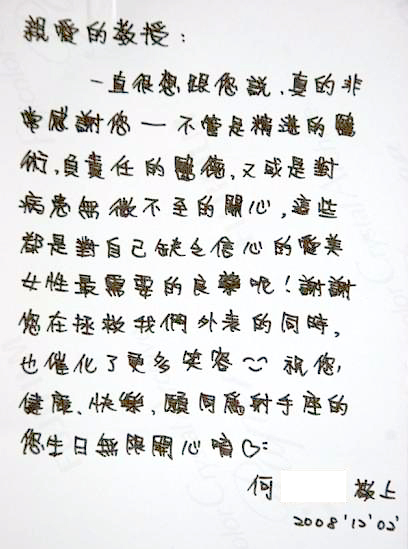 親愛的教授：
一直很想跟您說，真的非
常感謝您一不管是精進的醫
術，負責任的醫德，又或是對
病患無微不至的關心，這些
都是對自己缺乏信心的愛美
女性最需要的良藥呢！謝謝
您在拯救我們外表的同時，
也催化了更多笑容 祝您，
健康、快樂，願同為射手座的
您生日無限開心噴♡
何 敬上
2008'12'02'